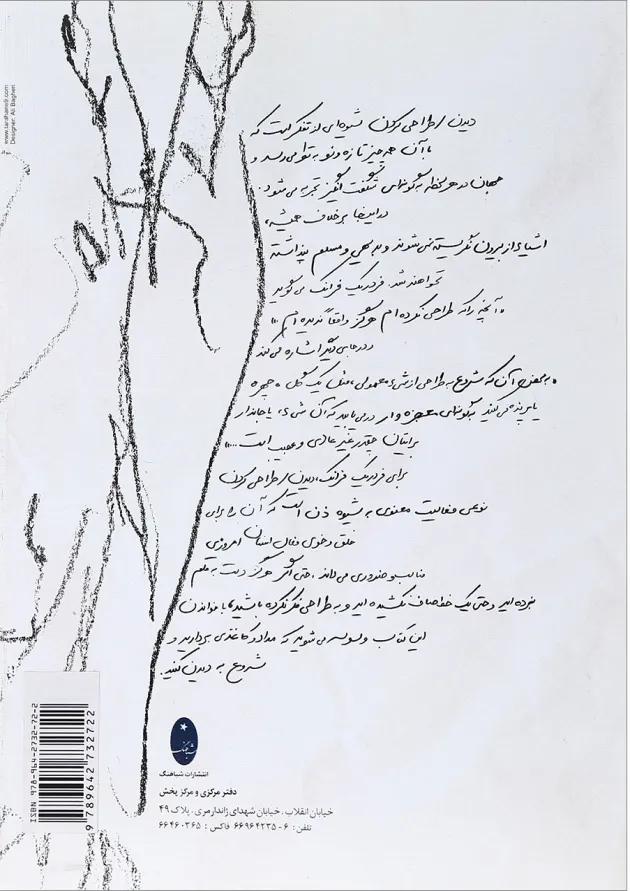 دیدن / طراحی کردن شیوه‌ای از تفکر است که
با آن همه چیز تازه و نو به نظر می‌رسد و
جهان در هر لحظه به گونه‌ای شگفت انگیز تجربه می‌شود.
در اینجا برخلاف همیشه،
اشیاء از بیرون نگریسته نمی‌شوند و بدیهی و مسلم پنداشته
نخواهند شد. فردریک فرانک می‌گوید
«آنچه را که طراحی نکرده‌ام هرگز واقعاً ندیده‌ام»
و در جایی دیگر اشاره می‌کند
«به محض آن که شروع به طراحی از شیء معمولی، مثل یک گل، چهره
یا پرنده می‌کنید به گونه‌ای معجزه وار در می‌یابید که آن شیء، یا جاندار
برایتان چقدر غیر عادی و عجیب است...»
برای فردریک فرانک، دیدن / طراحی کردن
نوعی فعالیت معنوی به شیوه ذن است که آن را برای
خلق و خوی فعال انسان امروزی
مناسب و ضروری می‌داند. حتی اگر هرگز دست به قلم
نبرده‌اید و حتی یک خط صاف نکشیده‌اید و به طراحی فکر نکرده باشید با خواندن
این کتاب وسوسه می‌شوید که مداد و کاغذی بردارید و
شروع به دیدن کنید.
شباهنگ
انتشارات شباهنگ
دفتر مرکزی و مرکز پخش
خیابان انقلاب، خیابان شهدای ژاندارمری، پلاک ۴۹
تلفن: ۶ - ۶۶۹۶۴۲۳۵ فاکس: ۶۶۴۶۰۳۶۵
ISBN 978-964-2732-72-2
9 789642 732722
www.tarahane9.com
Designer: Ali Bagheri